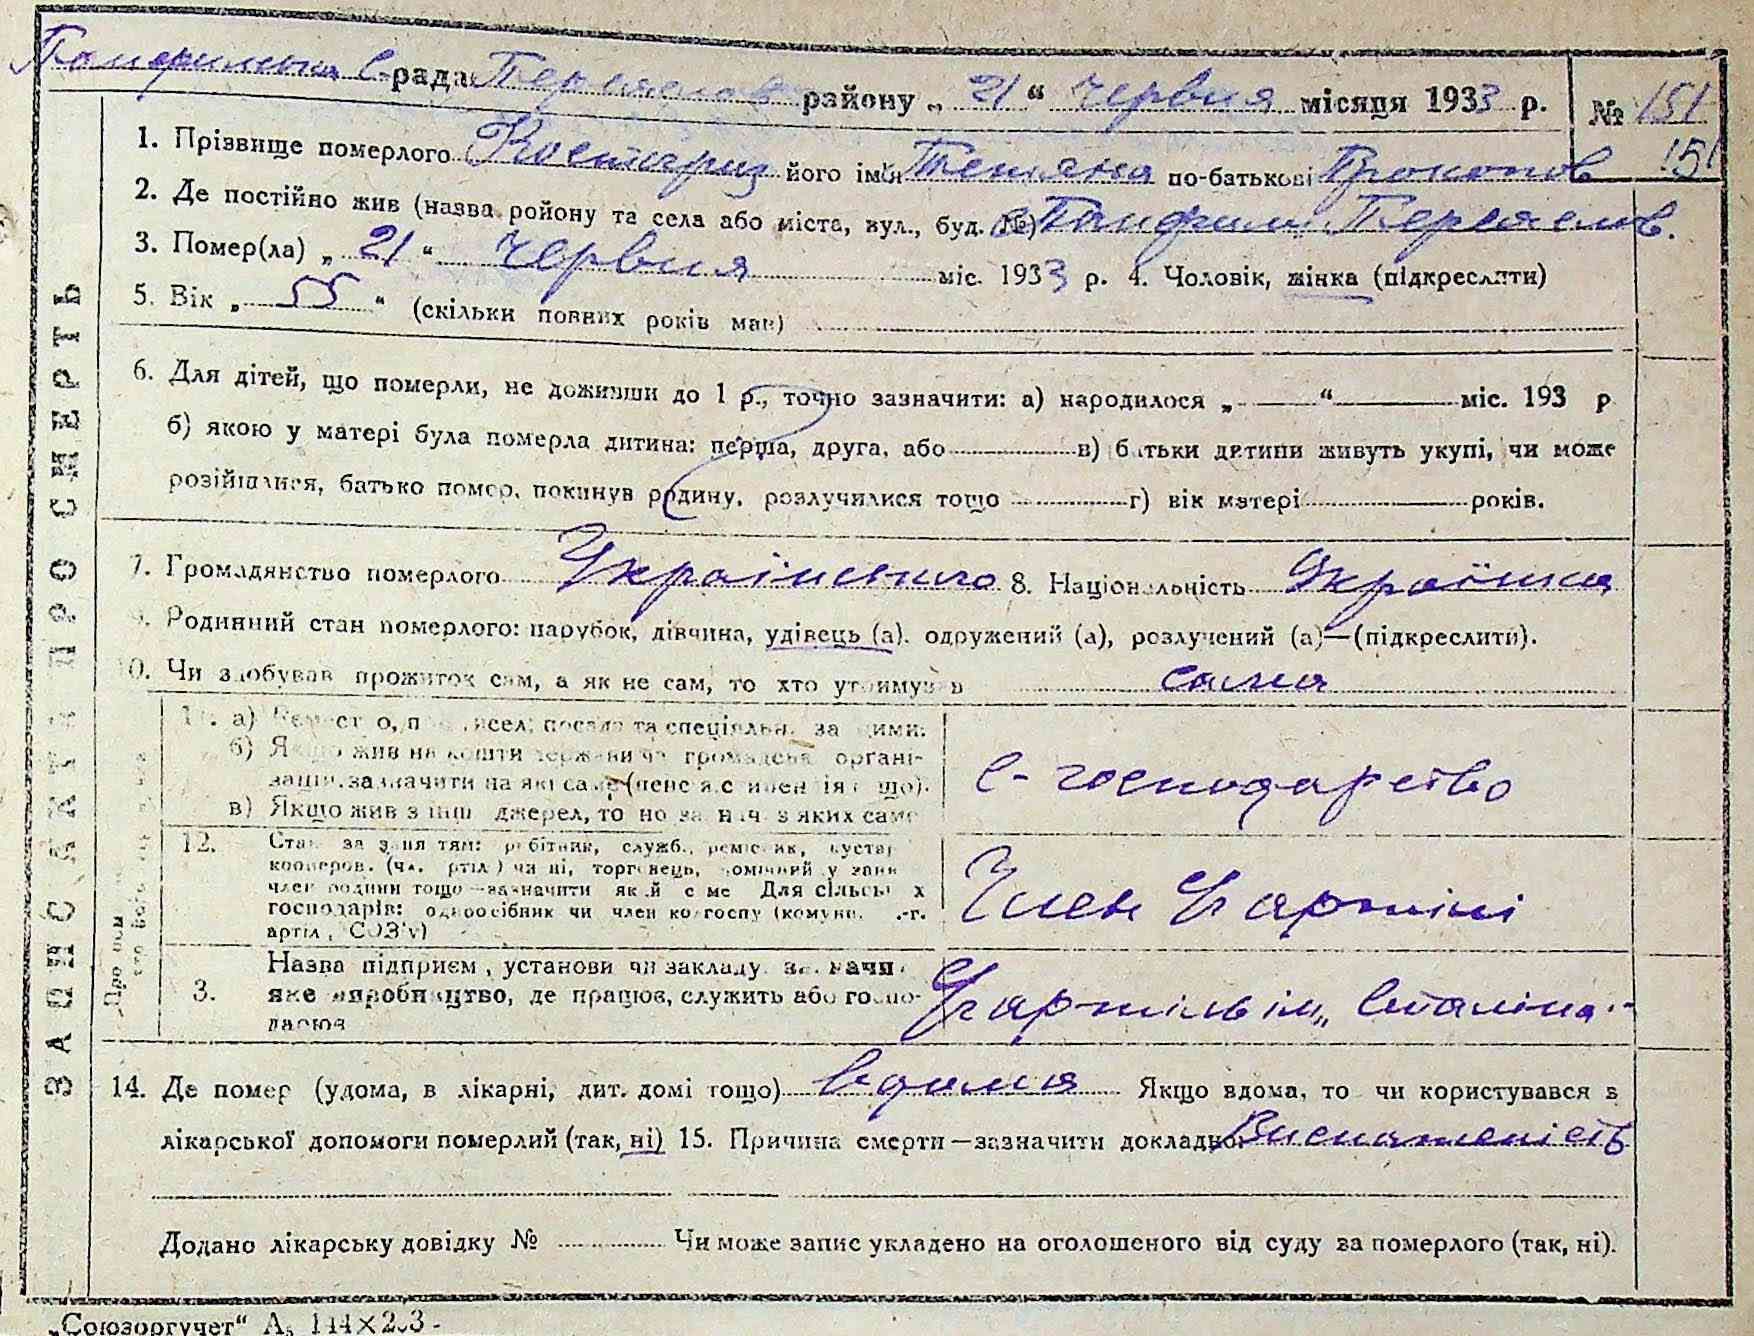 Панфильська с-рада Переяслов району „ 21 “ червня місяця 1933 р. № 151
1. Прізвище померлого Костогриз його ім'я Тетяна по-батькові Прокопов 151
2. Де постійно жив (назва ройону та села або міста, вул., буд. №) с Панфили Переяслов.
3. Помер(ла) „ 21 “ червня міс. 1933 р. 4. Чоловік, жінка (підкреслити)
5. Вік „ 55 “ (скільки повних років мав)
6. Для дітей, що померли, не доживши до 1 р., точно зазначити: а) народилося „ — “ — міс. 193 р
б) якою у матері була померла дитина: перша, друга, або в) батьки дитини живуть укупі, чи може
розійшлися, батько помер, покинув родину, розлучилися тощо г) вік матері років.
7. Громадянство померлого Українського 8. Національність Українка
9. Родинний стан померлого: парубок, дівчина, удівець (а). одружений (а), розлучений (а)—(підкреслити).
10. Чи здобував прожиток сам, а як не сам, то хто утримував сама
11. а) посада та спеціяльн. за ними:
б) Якщо жив на кошти держави чи громадськ. органі-
зацій, зазначити на які саме
в) Якщо жив з інш джерел, то з яких саме
с-господарство
12. Стан за заняттям: робітник, служб., ремісник, кустар
кооперов. чи ні, торговець,
член родини тощо—зазначити який саме Для сільськ х
господарів: одноосібник чи член колгоспу (комуни, с.-г.
артіл, СОЗ'у)
Член Ч артілі
3. Назва підприєм, установи чи закладу, зазначи
яке виробництво, де працює, служить або госпо-
дарює
Ч артіль ім „ Сталіна “
14. Де помер (удома, в лікарні, дит. домі тощо) вдома Якщо вдома, то чи користувався з
лікарської допомоги померлий (так, ні) 15. Причина смерти—зазначити докладно: Виснаженість
Додано лікарську довідку № Чи може запис укладено на оголошеного від суду за померлого (так, ні).
ЗАПИС АКТА ПРО СМЕРТЬ
„Союзоргучет“ А₅ 144×203 -